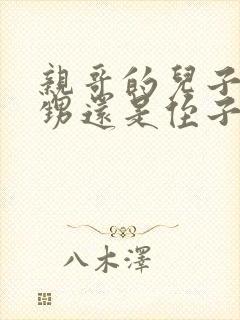 親哥的兒子
甥還是侄子
八木澤